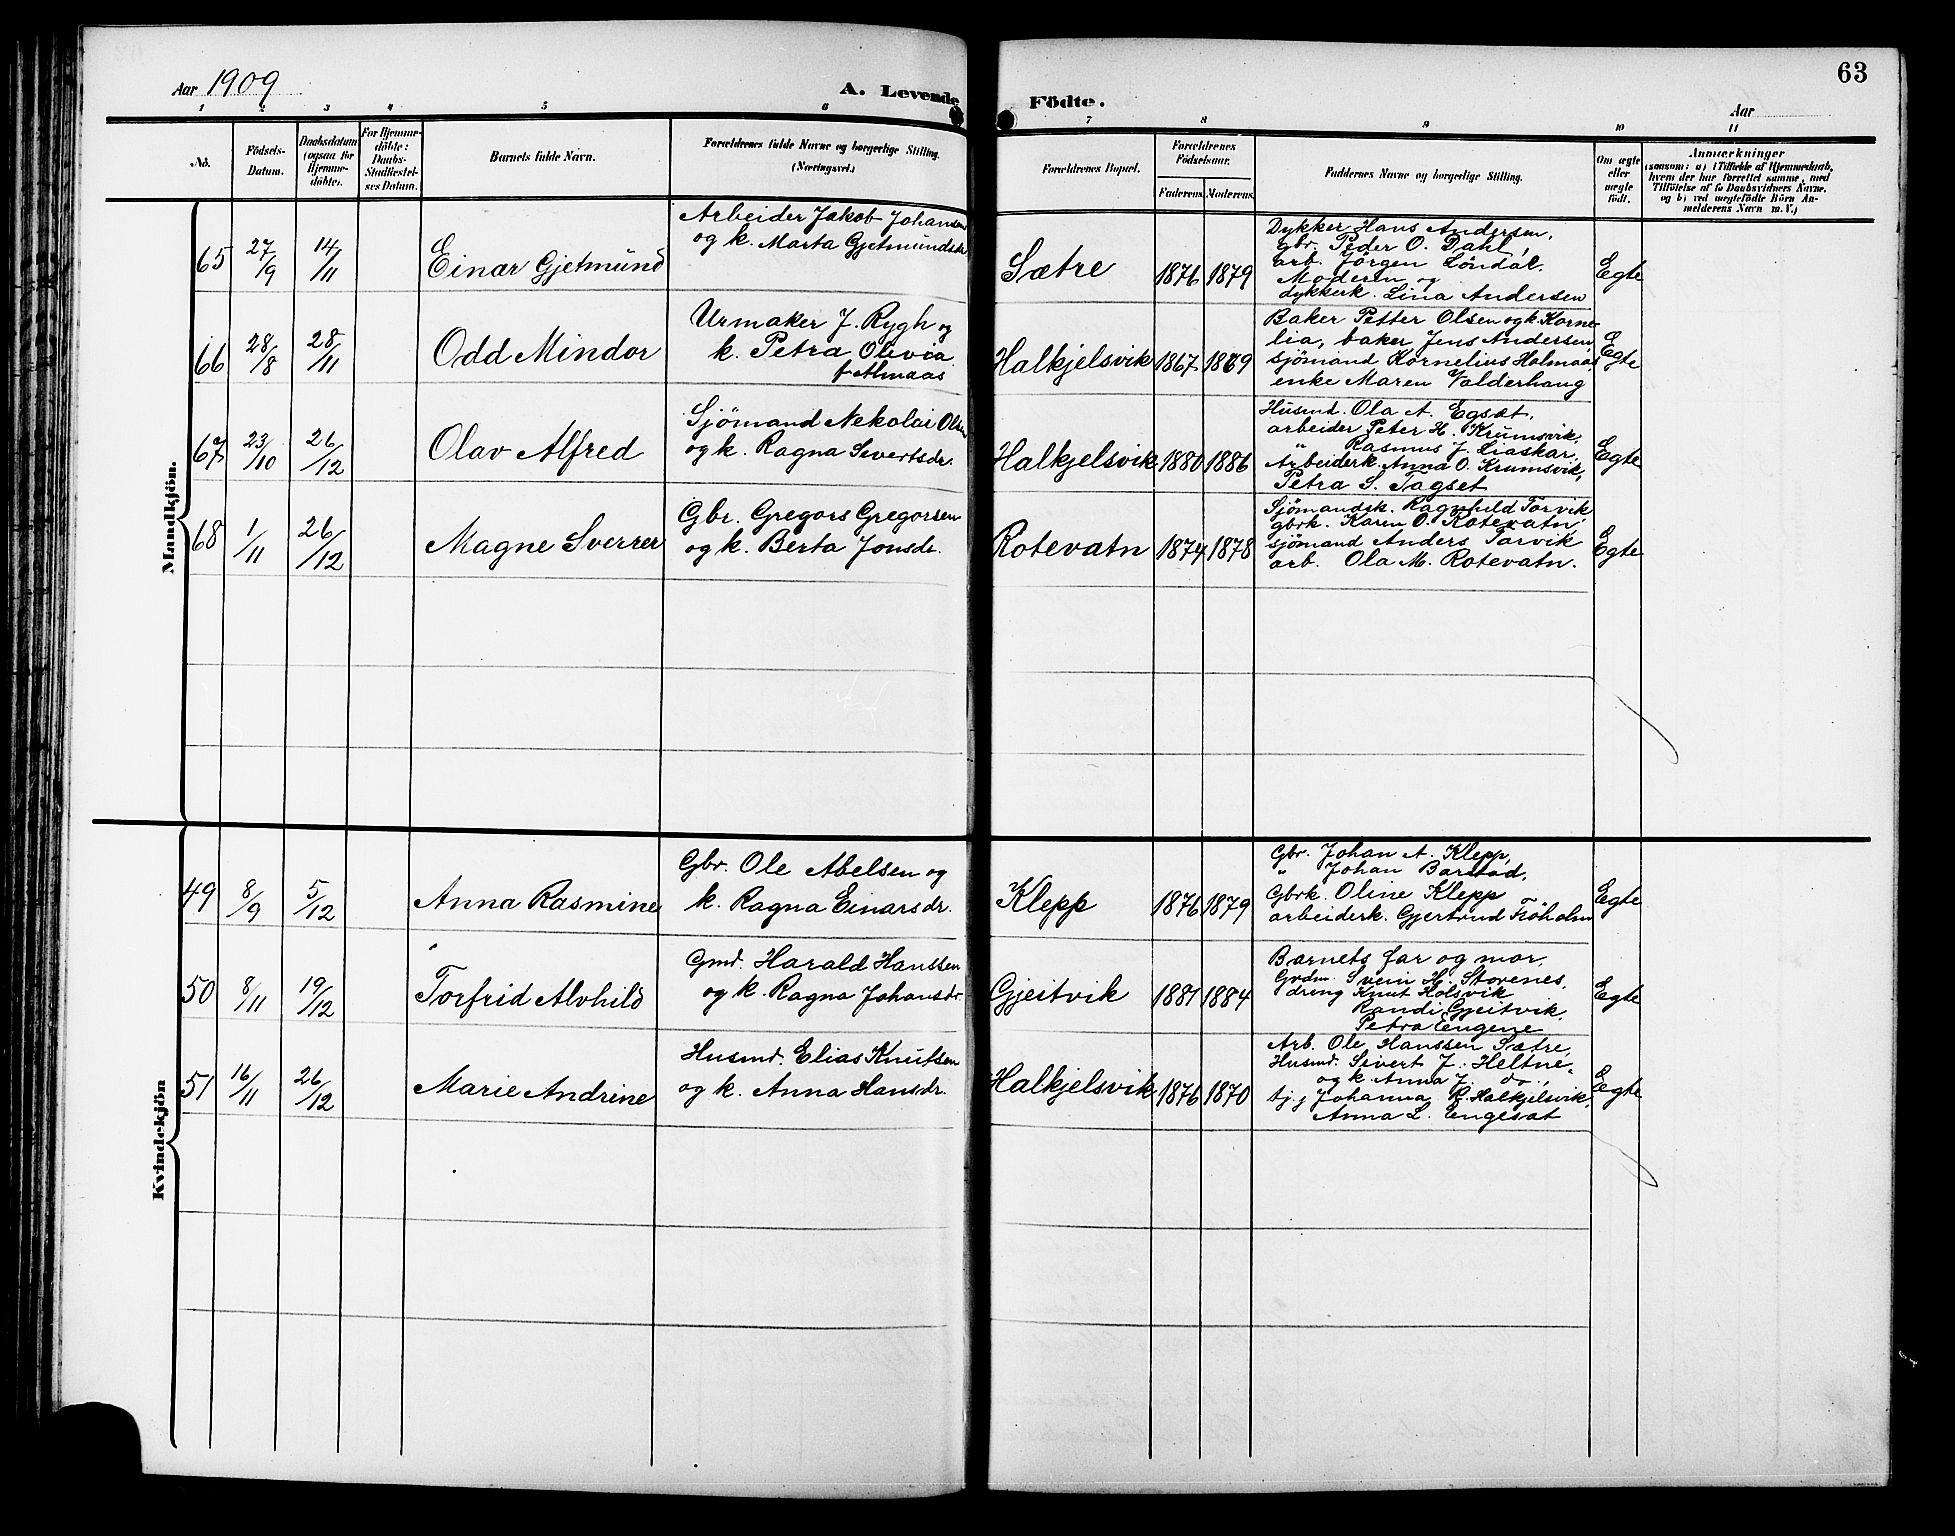 63
Aar 1909
A. Levende Födte.
Aar
1 2 3 4 5 6 7 8 9 10 11
No.
Födsels-
Datum.
Daabsdatum
(ogsaa for
Hjemme-
döbte).
For Hjemme-
döbte:
Daabs-
Stadfæstel-
ses Datum.
Barnets fulde Navn.
Forældrenes fulde Navne og borgerlige Stilling.
(Næringsvei.)
Forældrenes Bopæl.
Forældrenes
Födselsaar.
Faderens. Moderens.
Faddernes Navne og borgerlige Stilling.
Om ægte
eller
uægte
födt.
Anmærkninger
(saasom: a) i Tilfælde af Hjemmedaab,
hvem der har forrettet samme, med
Tilföielse af to Daabsvidners Navne.
og b) ved uægtefödte Börn An-
melderens Navn m. V.)
Mandkjön.
65 27/9 14/11 Einar Gjetmund
Arbeider Jakob Johansen
og k. Marta Gjetmundsdr.
Sætre 1876 1879
Dykker Hans Andersen,
gbr. Peder O. Dahl,
arb. Jörgen Löndal.
Moderen og
dykkerk. Lina Andersen
Egte
66 28/8 28/11 Odd Mindor
Urmaker J. Rygh og
k. Petra Olivia
f. Almaas
Halkjelsvik 1867 1869
Baker Petter Olsen og k. Korne-
lia, baker Jens Andersen,
sjömand Kornelius Halmaas
enke Maren Valderhaug
Egte
67 23/10 26/12 Olav Alfred
Sjömand Nekolai Olsen
og k. Ragna Sivertsdr.
Halkjelsvik 1880 1886
Husmd. Ola A. Egsæt,
arbeider Peter H. Krumsvik,
" Rasmus J. Liaskar,
Arbeiderk. Anna O. Krumsvik,
Petra S. Tagset
Egte
68 1/11 26/12 Magne Sverrer
Gbr. Gregors Gregorsen
og k. Berta Jonsdr.
Rotevatn 1874 1878
Sjömandsk. Ragnhild Torvik
gbrk. Karen O. Rotevatn,
sjömand Anders Torvik
arb. Ola M. Rotevatn.
Egte
Kvindekjön
49 8/9 5/12 Anna Rasmine
Gbr. Ole Abelsen og
k. Ragna Einarsdr.
Klepp 1876 1879
Gbr. Johan A. Klepp,
" Johan Barstad,
Gbrk. Oline Klepp
arbeiderk. Gjertrud Fröholm
Egte
50 8/11 19/12 Torfrid Alvhild
Gmd. Harald Hanssen
og k. Ragna Johansdr.
Gjeitvik 1881 1884
Barnets far og mor,
Grdm. Svein H. Storenes,
dreng Knut Kolsvik
Randi Gjeitvik,
Petra Engene
Egte
51 16/11 26/12 Marie Andrine
Husmd. Elias Knutsen
og k. Anna Hansdr.
Halkjelsvik 1876 1870
Arb. Ole Hanssen Sætre,
Husmd. Sivert J. Heltne,
og k. Anna J. do.,
tj.j Johanna R. Halkjelsvik,
Anna L. Engesat
Egte